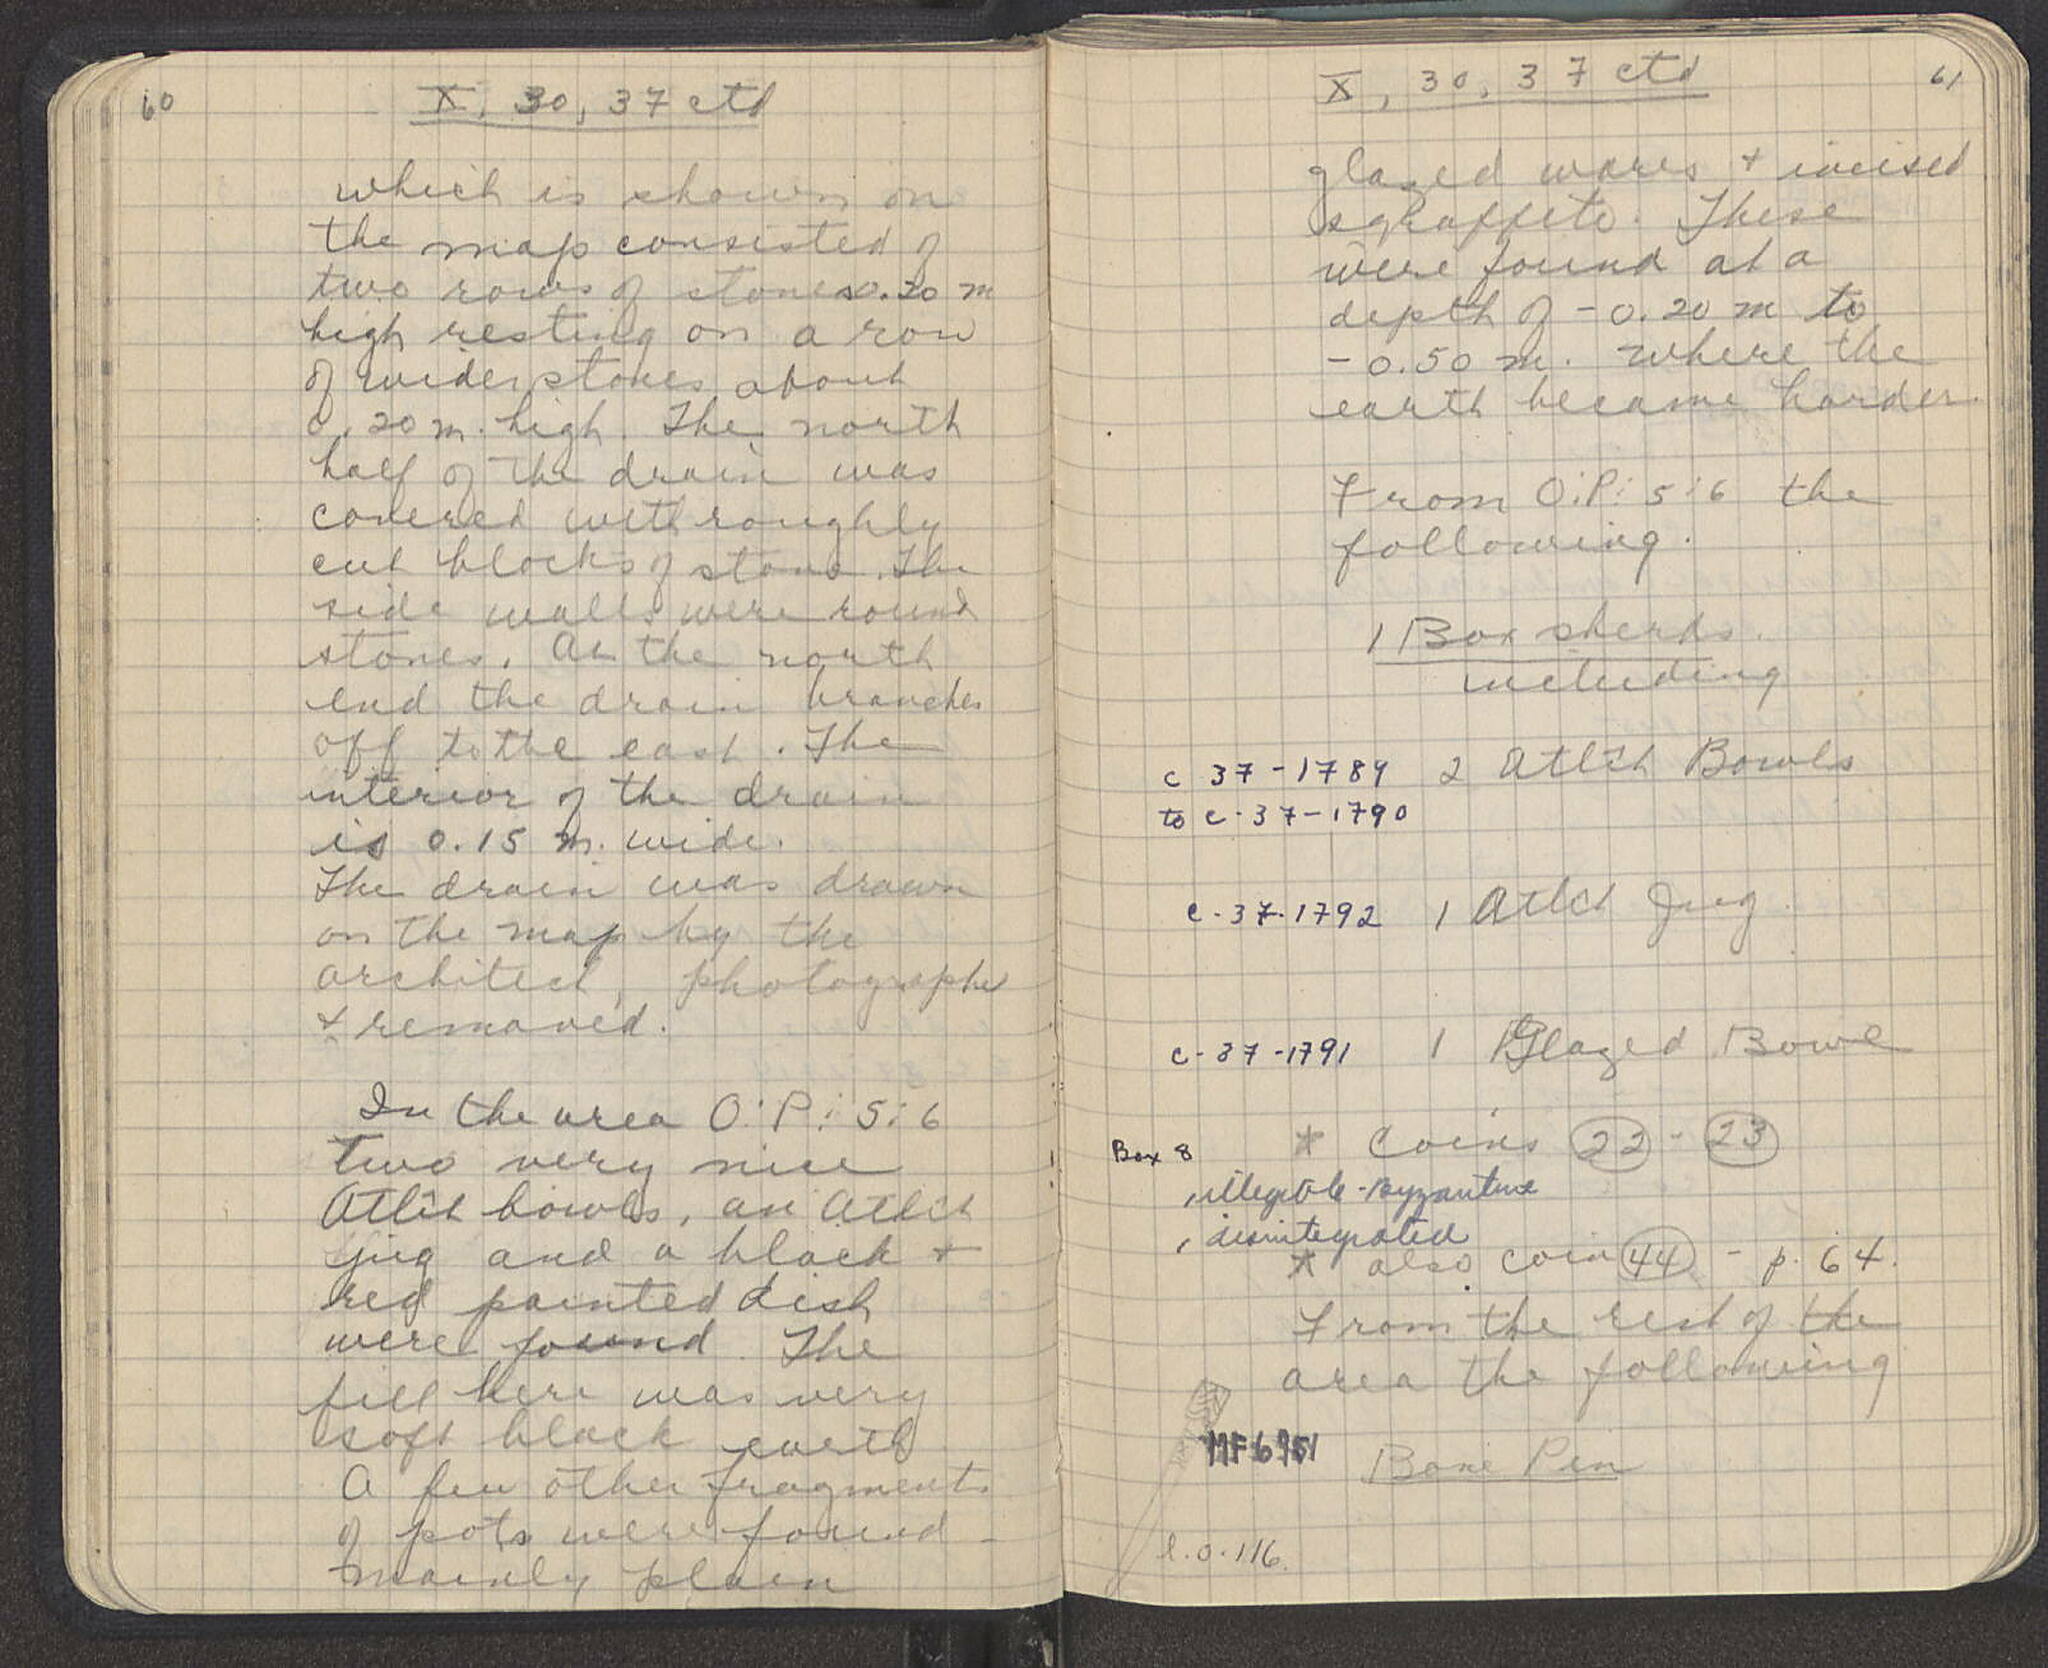 60
X, 30, 37 ctd
which is shown on
the map consisted of
two rows of stones 0.20 m
high resting on a row
of wider stones about
0.20 m. high. The north
half of the drain was
covered with roughly
cut blocks of stone. The
side walls were round
stones. At the north
end the drain branches
off to the east. The
interior of the drain
is 0.15 m. wide.
The drain was drawn
on the map by the
architect, photographed
& removed.
In the area O:P:5:6
two very nice
Atlit bowls, an Atlit
jug and a black +
red painted dish
were found. The
fill here was very
soft black earth
A few other fragments
of pots were found -
mainly plain
X, 30, 37 ctd
61
glazed wares + incised
sgraffito. These
were found at a
depth of -0.20 m to
-0.50 m. where the
earth became harder.
From O:P:5:6 the
following.
1 Box sherds.
including
C 37-1789 2 Atlit Bowls
to C-37-1790
C-37-1792 1 Atlit Jug.
C-37-1791 1 Glazed Bowl
Box 8 * Coins 22 - 23
1 illegible - Byzantine
1 disintegrated
* also coin 44 - p. 64.
From the rest of the
area the following
MF 6951 Bone Pin
l. 0.116.